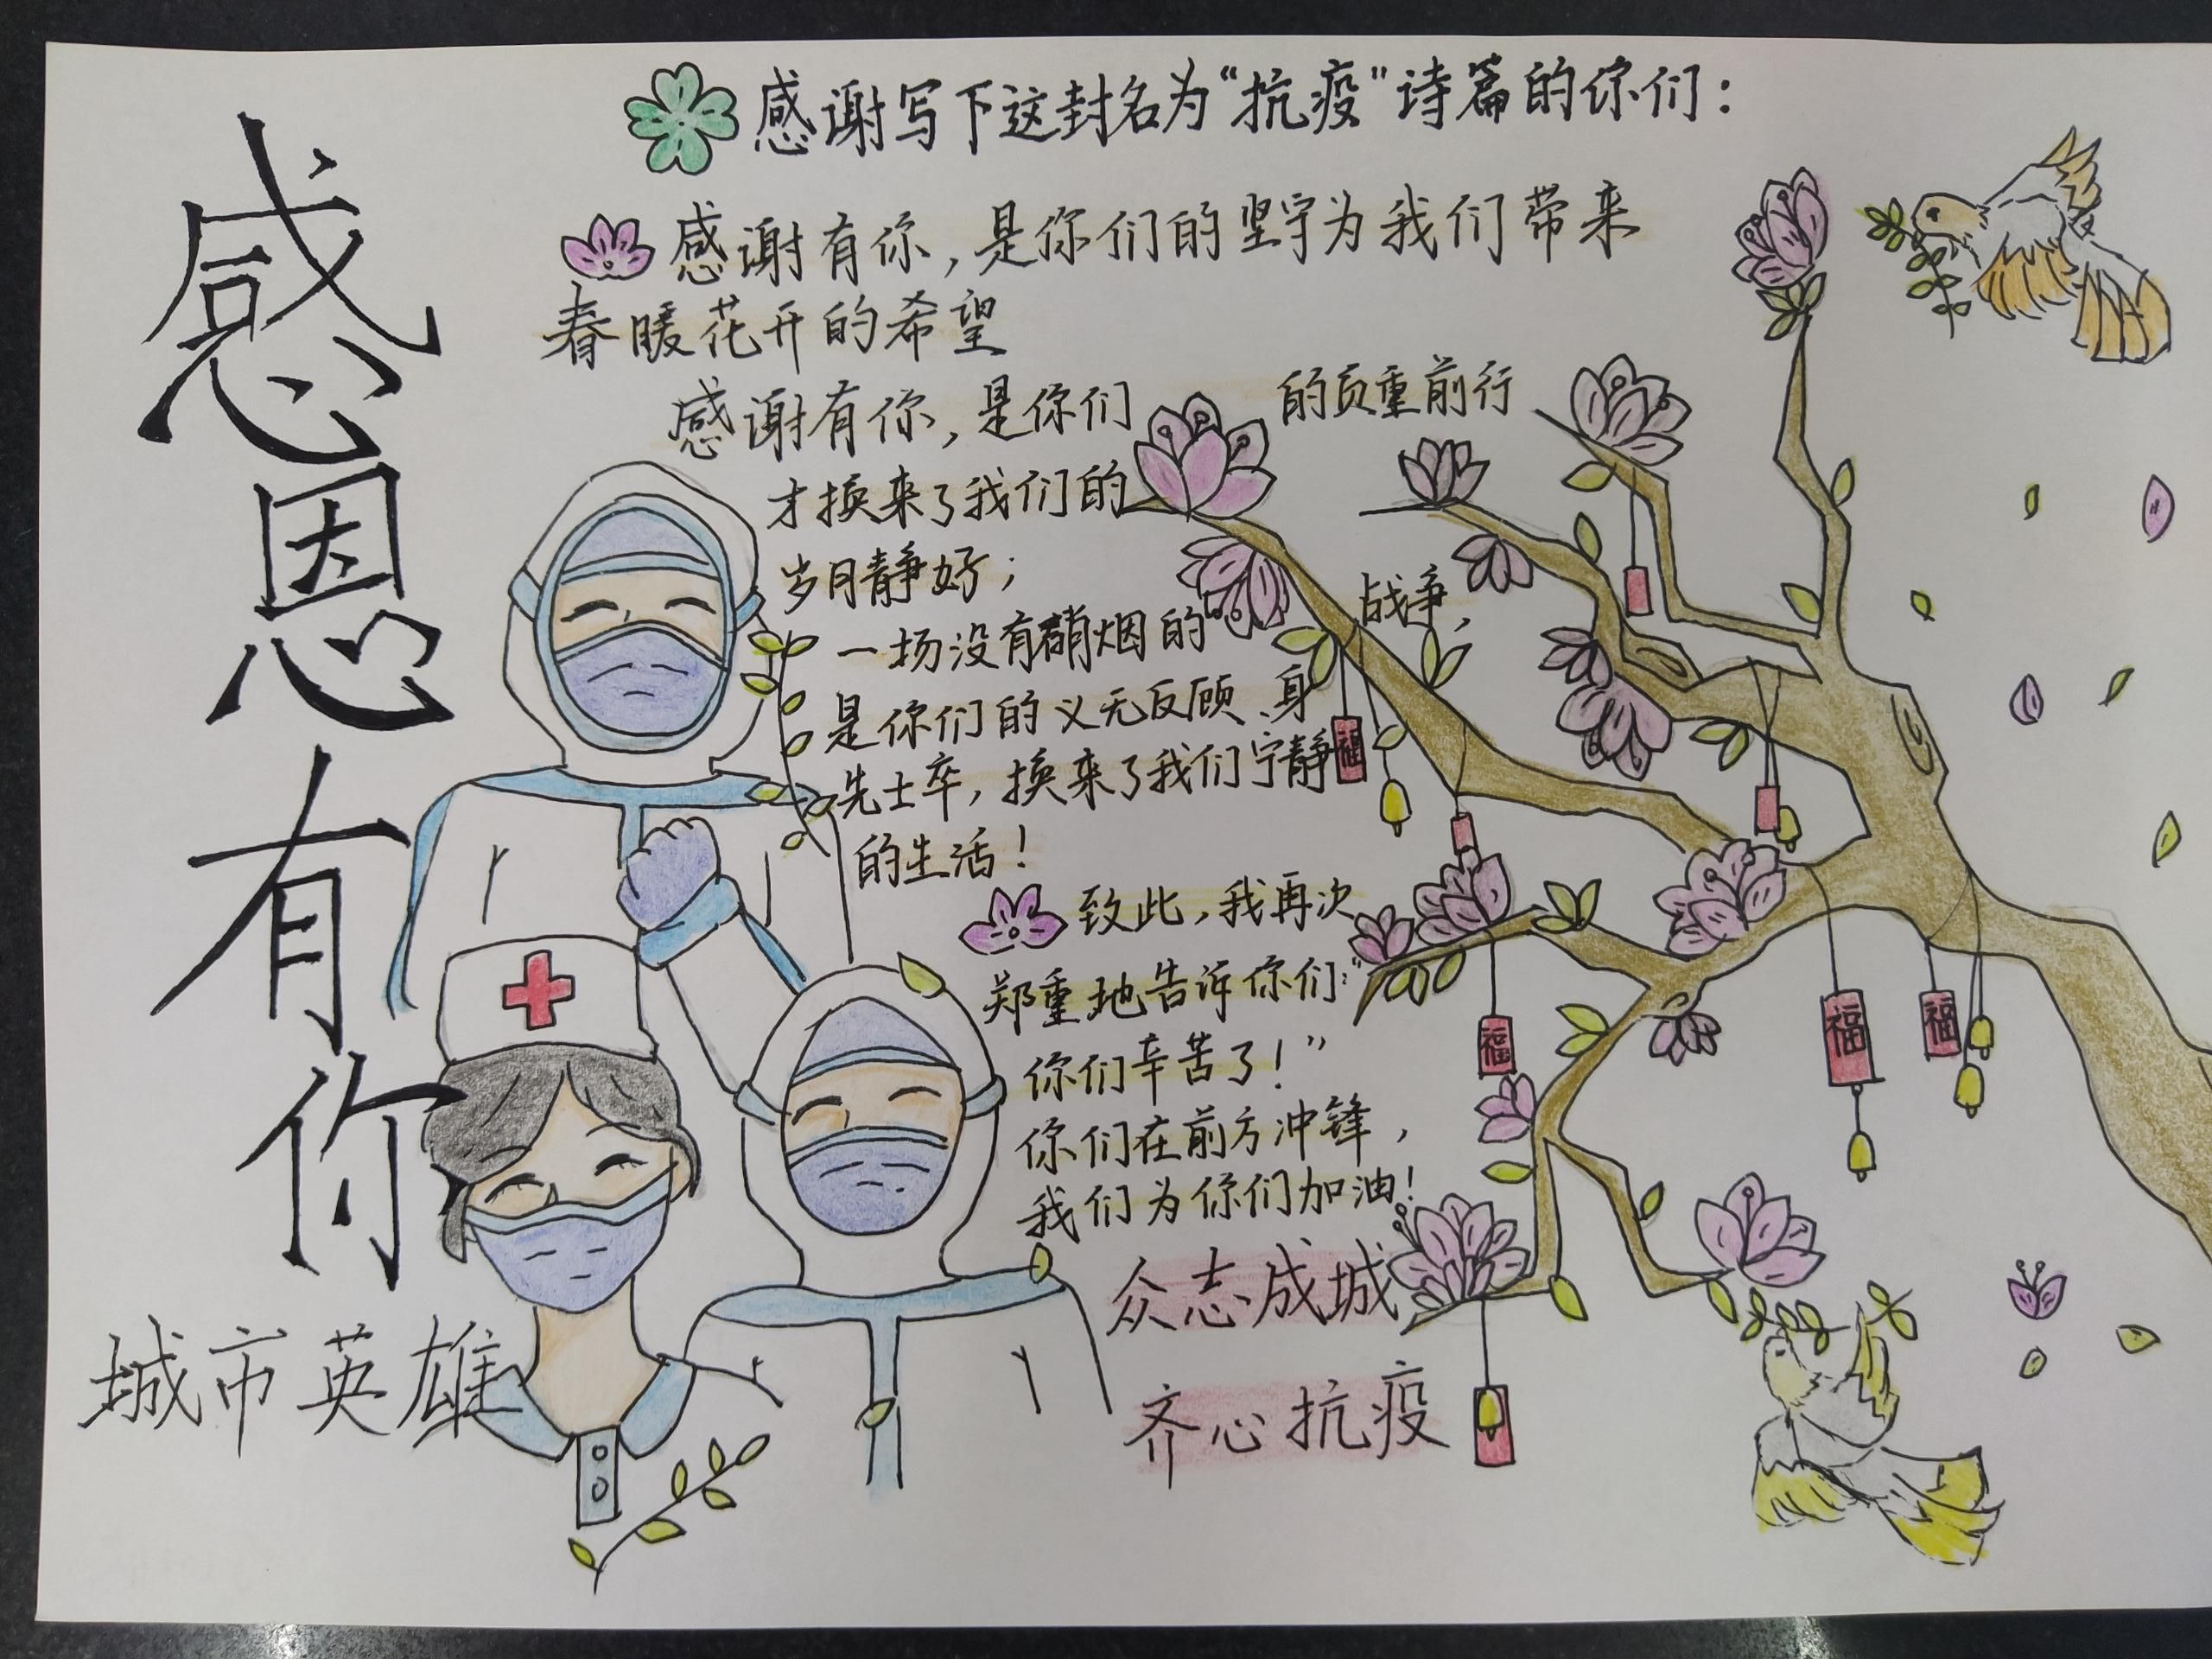 感恩有你
城市英雄
感谢写下这封名为“抗疫”诗篇的你们：
感谢有你，是你们的坚守为我们带来
春暖花开的希望
感谢有你，是你们的负重前行
才换来了我们的
岁月静好；
一场没有硝烟的战争，
是你们的义无反顾、身
先士卒，换来了我们宁静
的生活！
致此，我再次
郑重地告诉你们：“
你们辛苦了！”
你们在前方冲锋，
我们为你们加油！
众志成城
齐心抗疫
福
福
福
福